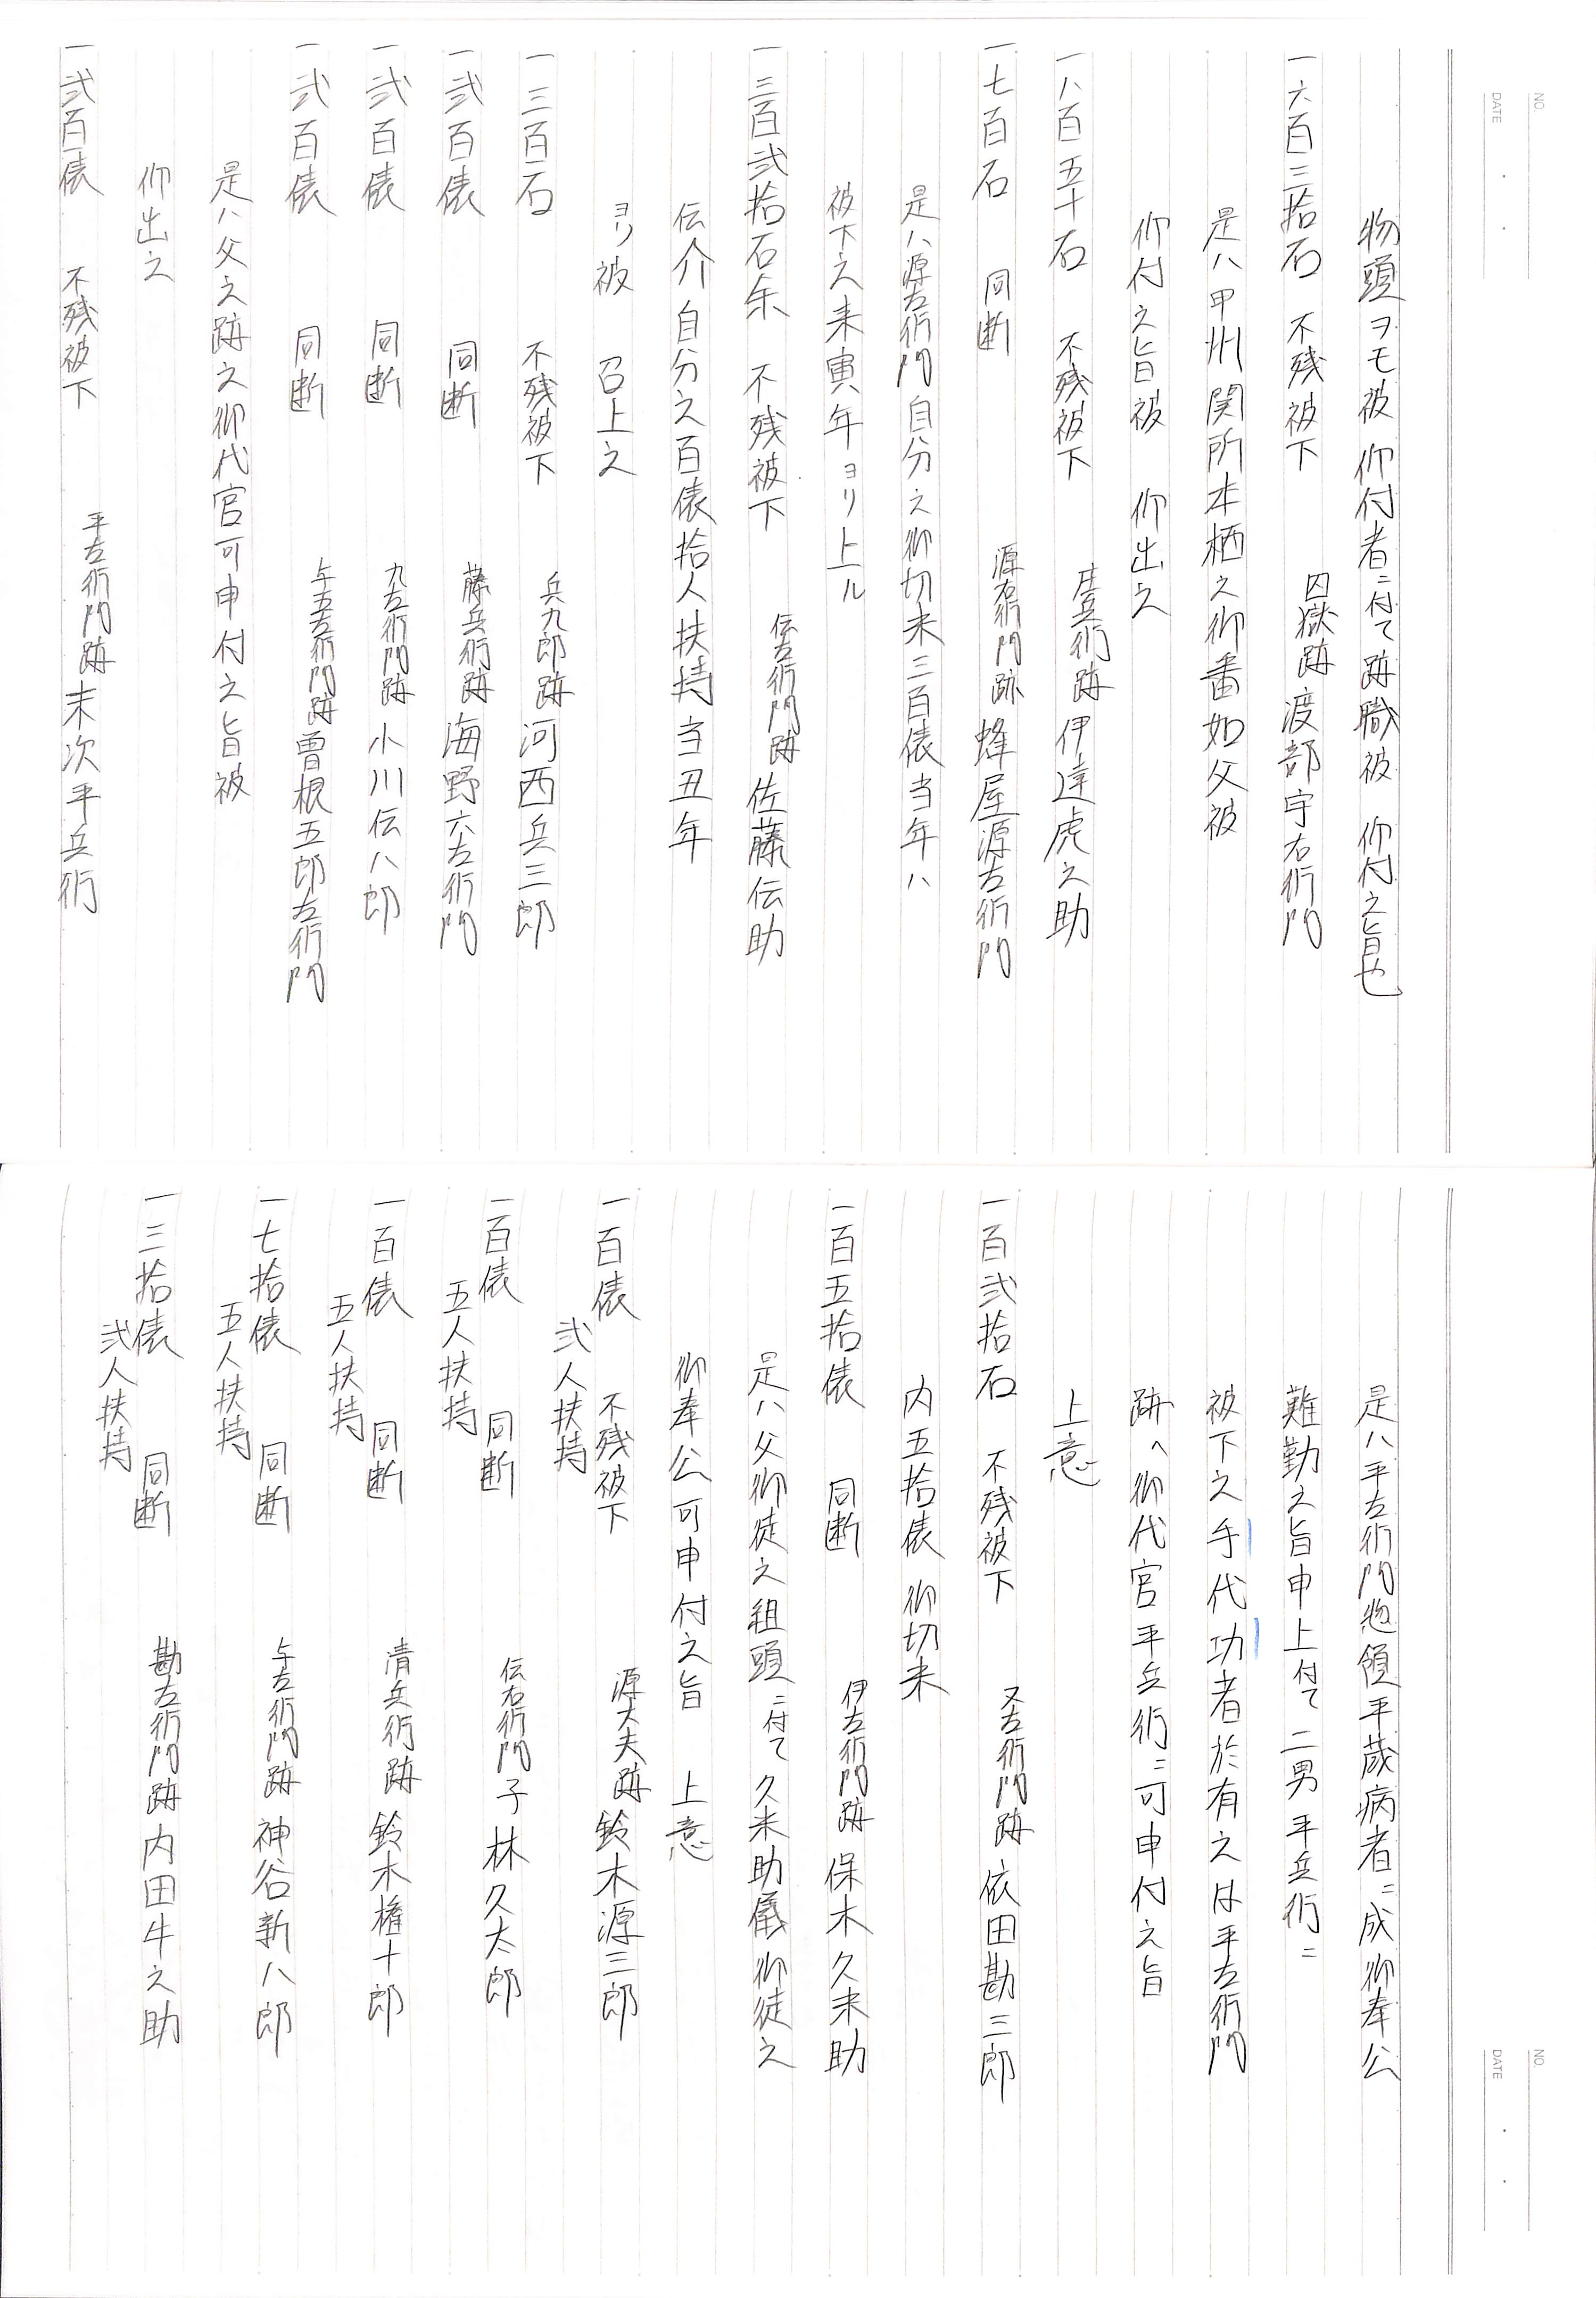 NO.
DATE
物頭ヲモ被 仰付者ニ付て跡職被 仰付之旨也
一六百三拾石 不残被下 囚獄跡 渡部宇右衛門
是ハ甲州関所本栖之御番如父被
仰付之旨被 仰出之
一八百五十石 不残被下 庄兵衛跡 伊達虎之助
一七百石 同断 源右衛門跡 蜂屋源左衛門
是ハ源左衛門自分之御切米三百俵当年ハ
被下之来寅年ヨリ上ル
一三百弐拾石余 不残被下 伝右衛門跡 佐藤伝助
伝介自分之百俵拾人扶持当丑年
ヨリ被 召上之
一三百石 不残被下 兵九郎跡 河西兵三郎
一弐百俵 同断 藤兵衛跡 海野六左衛門
一弐百俵 同断 九左衛門跡 小川伝八郎
一弐百俵 同断 与五左衛門跡 曽根五郎左衛門
是ハ父之跡之御代官可申付之旨被
仰出之
一弐百俵 不残被下 平左衛門跡 末次平兵衛
NO.
DATE
是ハ平左衛門惣領平蔵病者ニ成御奉公
難勤之旨申上付て二男平兵衛ニ
被下之手代功者於有之は平左衛門
跡へ御代官平兵衛ニ可申付之旨
上意
一百弐拾石 不残被下 又左衛門跡 依田勘三郎
内五拾俵 御切米
一百五拾俵 同断 伊左衛門跡 保木久米助
是ハ父御徒之組頭ニ付て久米助儀御徒之
御奉公可申付之旨 上意
一百俵 不残被下 源大夫跡 鈴木源三郎
弐人扶持
一百俵 同断 伝右衛門子 林久太郎
五人扶持
一百俵 同断 清兵衛跡 鈴木権十郎
五人扶持
一七拾俵 同断 与左衛門跡 神谷新八郎
五人扶持
一三拾俵 同断 勘左衛門跡 内田牛之助
弐人扶持